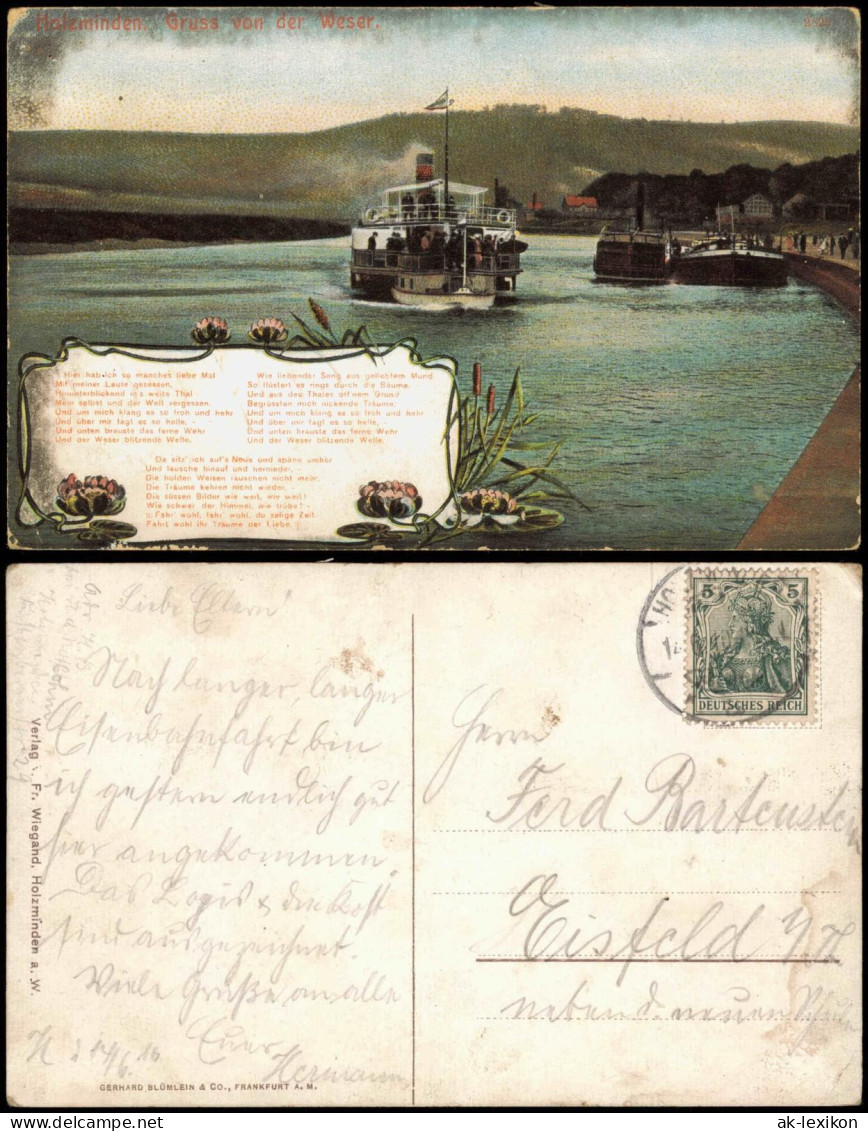 Holzminden. Gruss von der Weser.
Hier hab ich so manches liebe Mal
Mit meiner Laute gesessen,
Hinunterblickend ins weite Thal
Mein selbst und der Welt vergessen.
Und um mich klang es so froh und hehr
Und über mir tagt es so helle, -
Und unten brauste das ferne Wehr
Und der Weser blitzende Welle.
Wie liebender Sang aus geliebtem Mund
So flüstert es rings durch die Bäume,
Und aus des Thales off'nem Grund
Begrüssten mich nickende Träume;
Und um mich klang es so froh und hehr
Und über mir tagt es so helle, -
Und unten brauste das ferne Wehr
Und der Weser blitzende Welle.
Da sitz' ich auf's Neue und spähe umher
Und lausche hinauf und hernieder, -
Die holden Weisen rauschen nicht mehr,
Die Träume kehren nicht wieder,
Die süssen Bilder wie weit, wie weit!
Wie schwer der Himmel, wie trübe! -
Fahr' wohl, fahr' wohl, du selige Zeit,
Fahrt wohl ihr Träume der Liebe.
Liebe Eltern!
Nach langer, langer
Eisenbahnfahrt bin
ich gestern endlich gut
hier angekommen.
Das Logis & die Kost
sind ausgezeichnet.
Viele Grüße an alle
Euer
Hermann
Verlag v. Fr. Wiegand, Holzminden a. W.
GERHARD BLÜMLEIN & CO., FRANKFURT A. M.
5 5
DEUTSCHES REICH
Herrn
Ferd Bartenstein
Eisfeld
neben d. neuen Schule
ak-lexikon